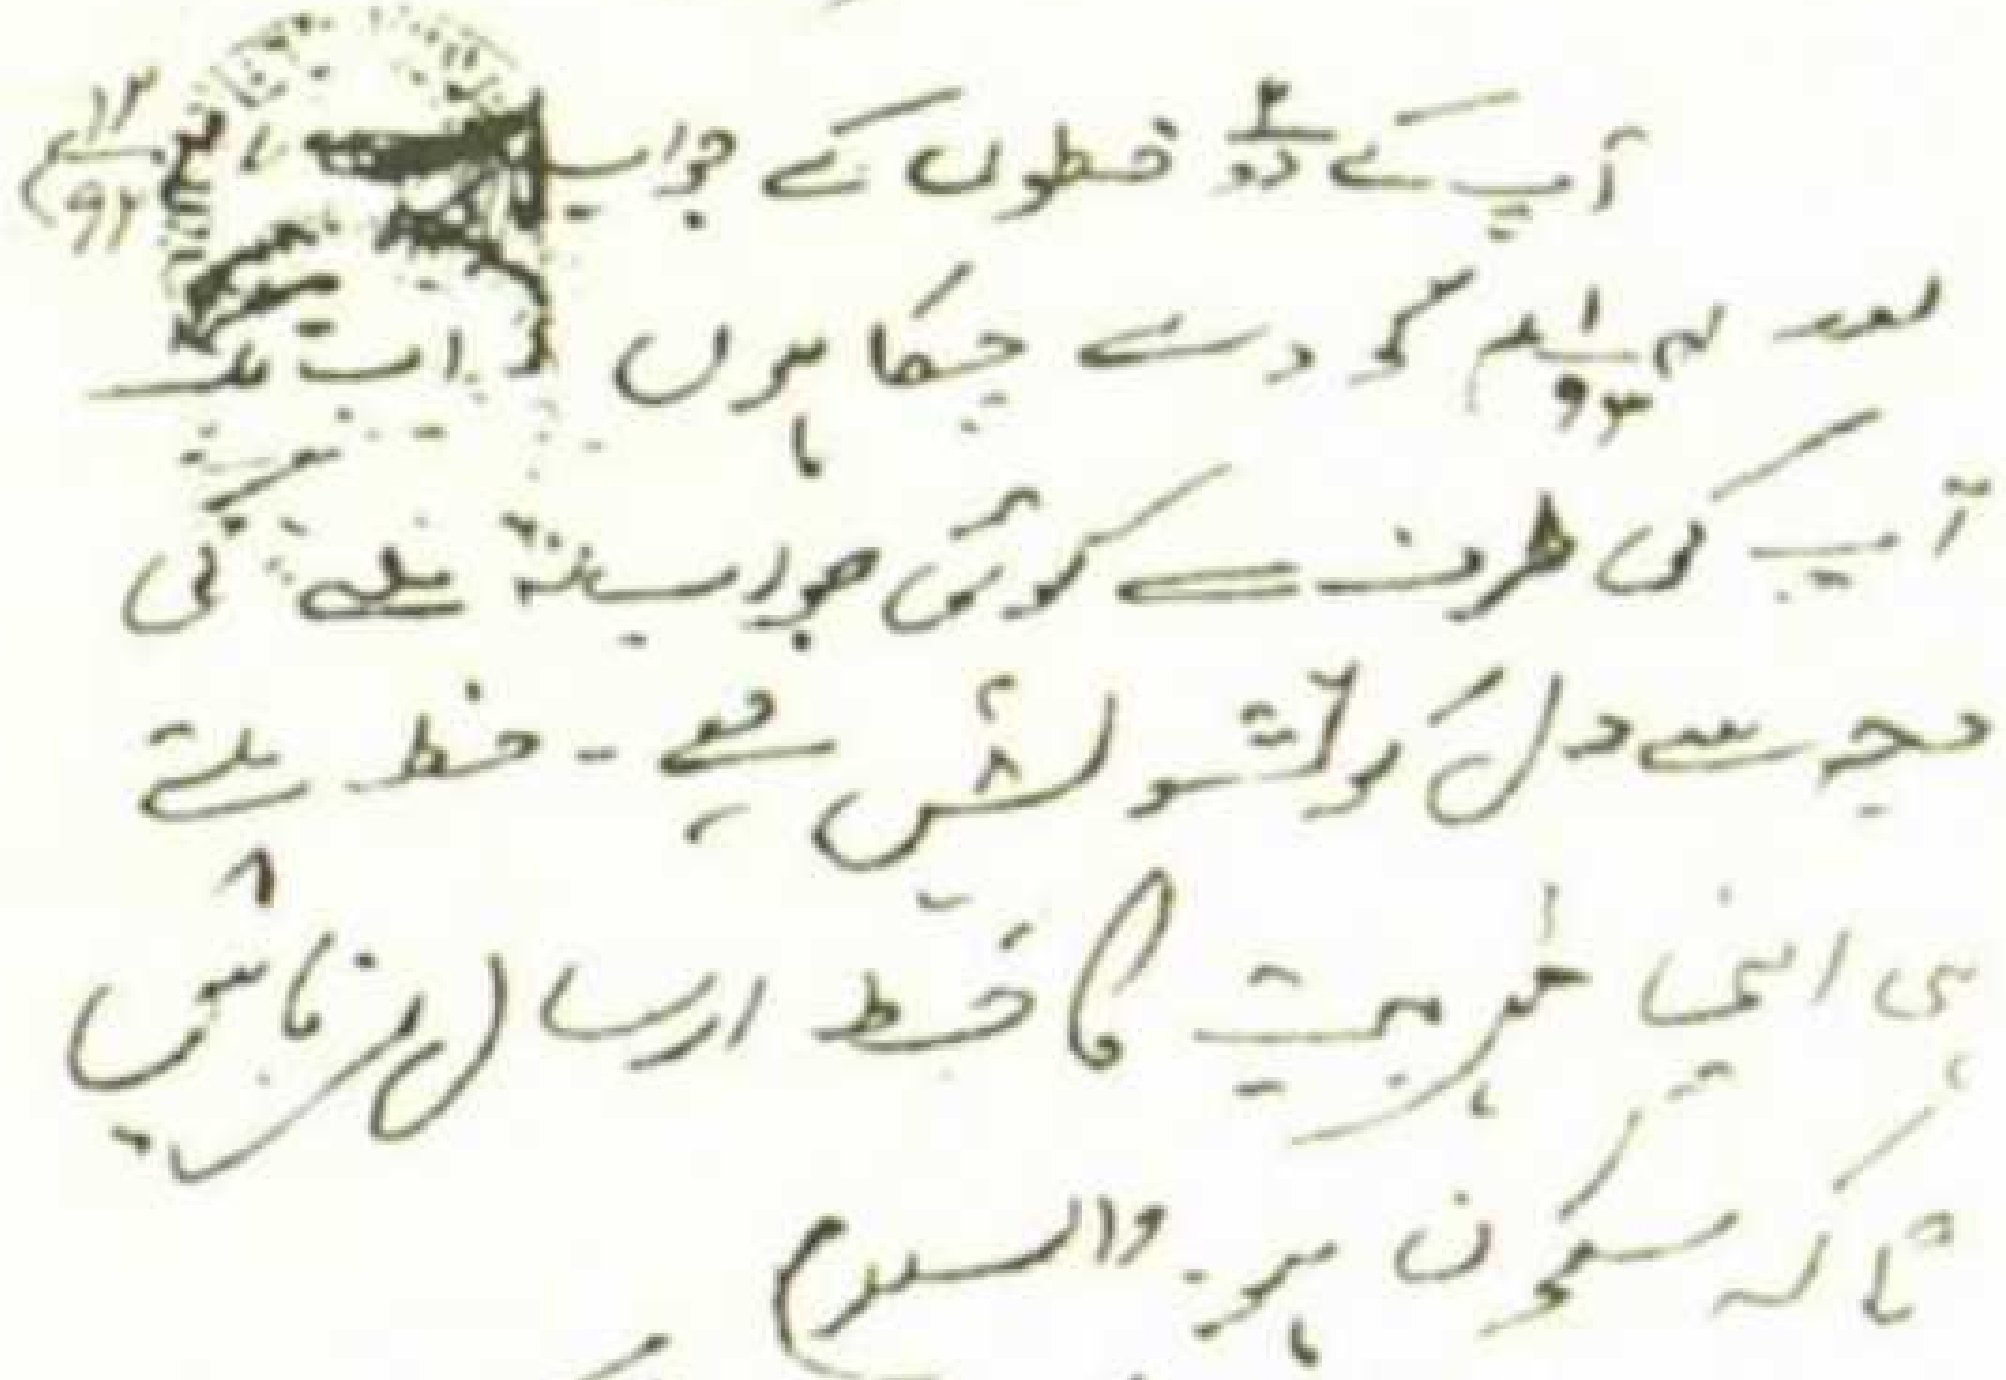 آپ کے ۲ دو خطوں کے جواب ۱۲/۹۲
بعد ۱/۹۳ کو دے چکا ہوں اب تک
آپ کی طرف سے کوئی جواب نہ ملنے کی
وجہ سے دل کو تشویش ہے - خط ملتے
ہی اپنی خیریت کا خط ارسال فرمائیں
تاکہ سکون ہو - والسلام